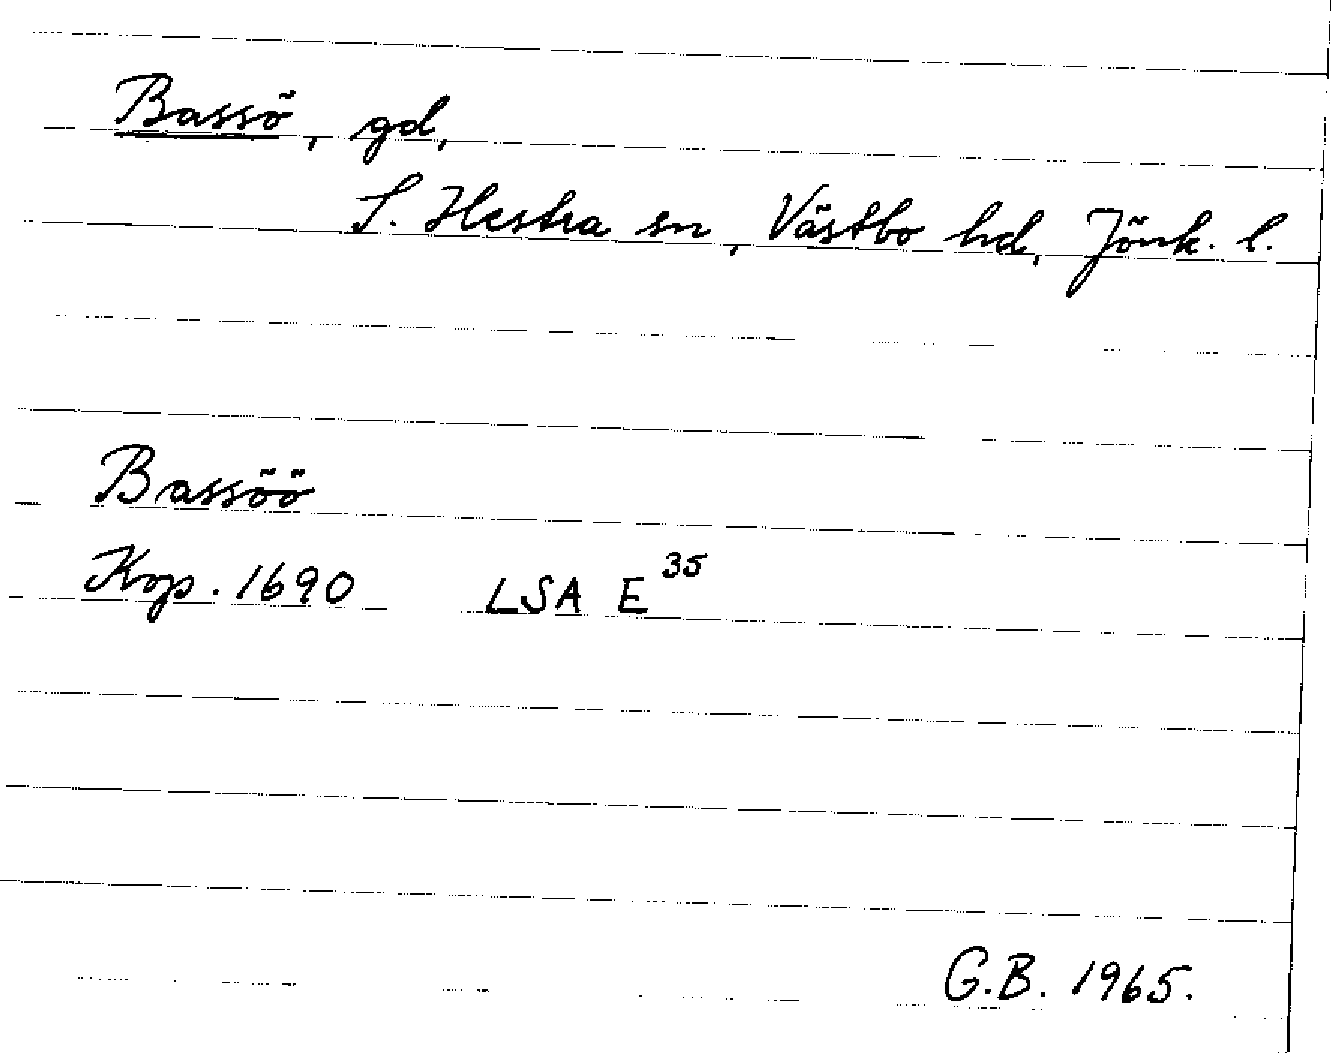 Bassö, gd,
S. Hestra sn, Västbo hd, Jönk. l.
Bassöö
Kop. 1690 LSA E 35
G.B. 1965.